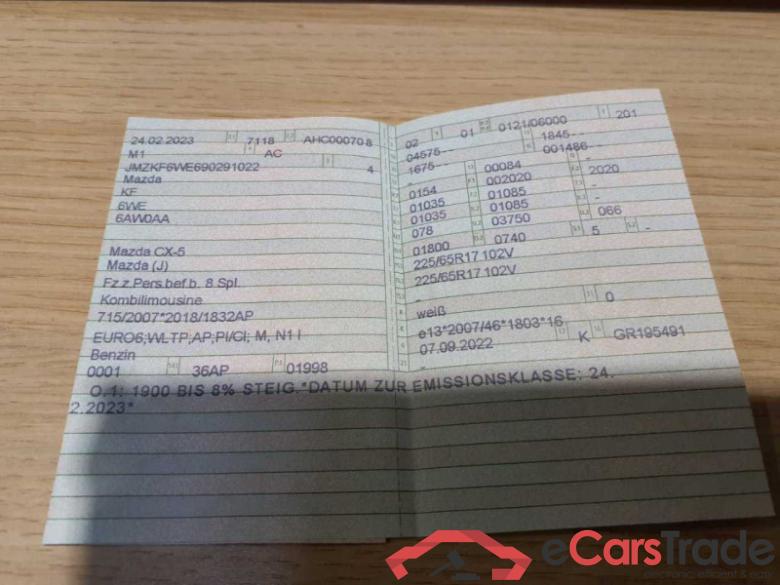 24.02.2023 7118 AHC000708
M1 AC
JMZKF6WE690291022 4
Mazda
KF
6WE
6AW0AA
Mazda CX-5
Mazda (J)
Fz.z.Pers.bef.b. 8 Spl.
Kombilimousine
715/2007*2018/1832AP
EURO6;WLTP;AP;PI/CI; M, N1 I
Benzin
0001 36AP 01998
O.1: 1900 BIS 8% STEIG.*DATUM ZUR EMISSIONSKLASSE: 24.
2.2023*
02 01 0121/06000 201
04575-- 1845--
1675-- 001486--
- 00084 -
0154 002020 2020
01035 01085 -
01035 01085 -
078 03750 066
01800 0740 5 -
225/65R17 102V
225/65R17 102V
-
weiß 0
e13*2007/46*1803*16
07.09.2022 K GR195491
-
eCarsTrade